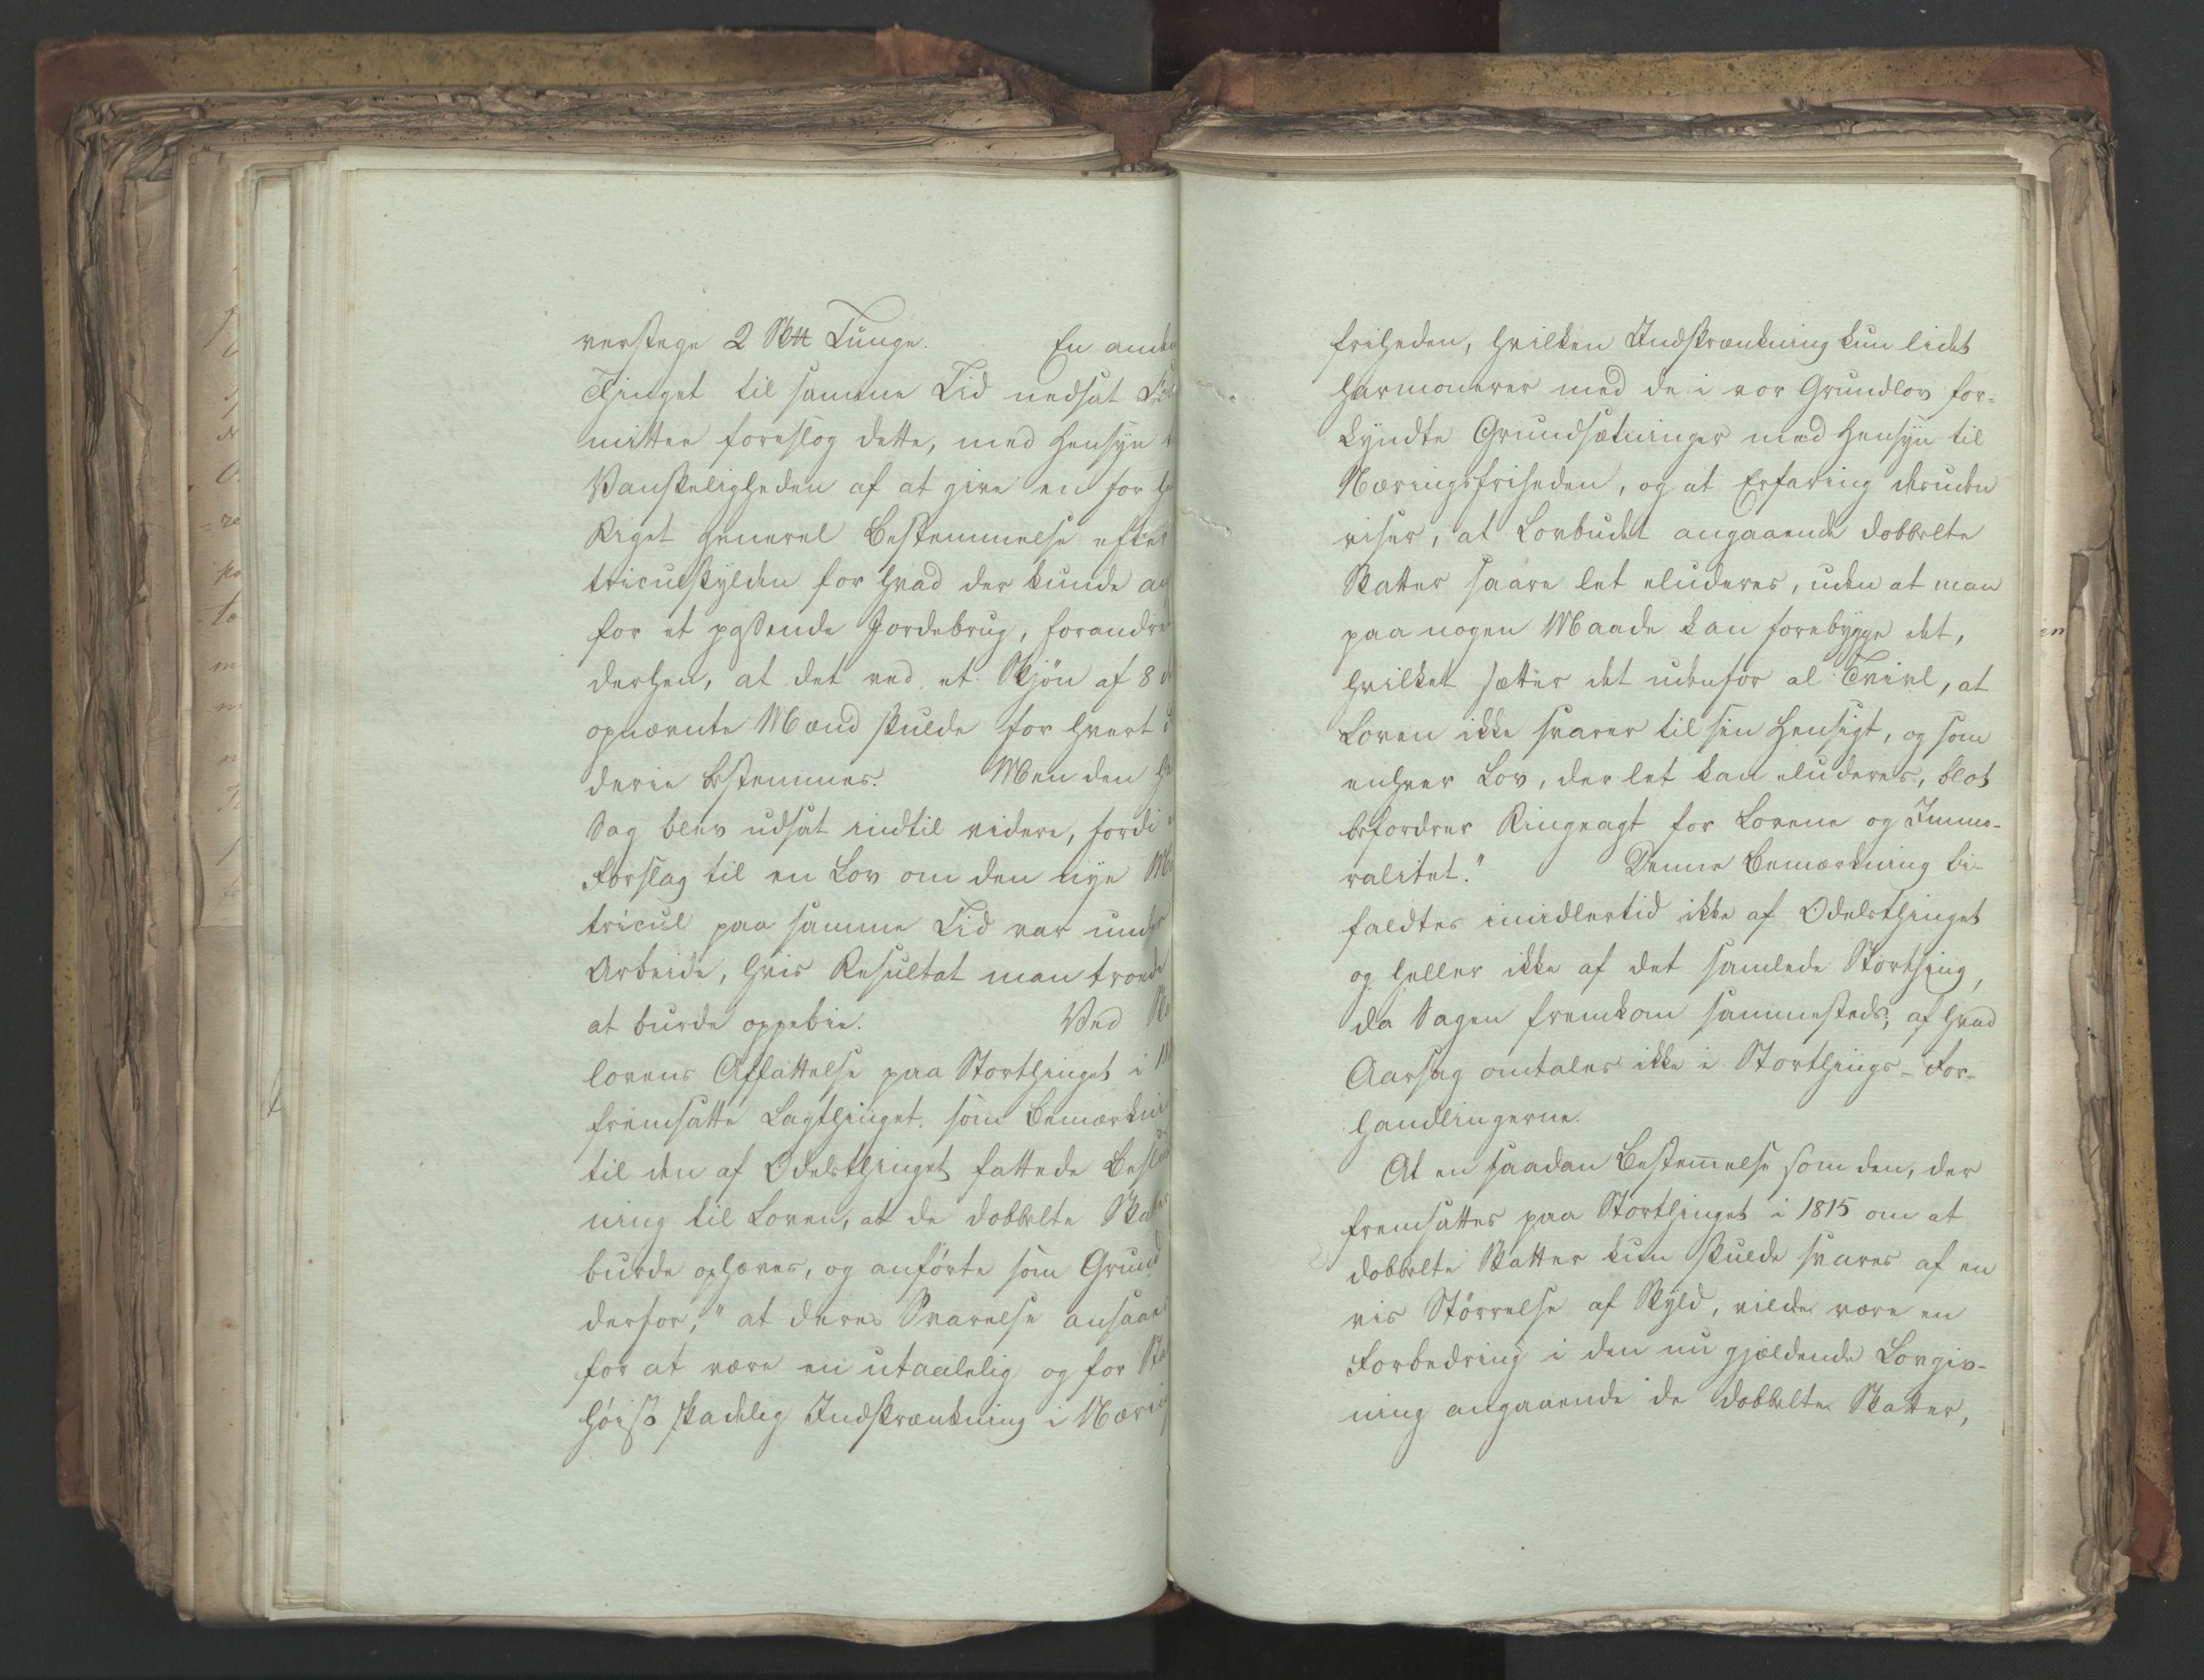 verstege 2 Sk℔ Tunge. En anden
Thinget til samme Tid nedsat
mittee foreslog dette, med Hensyn
Vanskeligheden af at give en for
Riget General Bestemmelse efter
triculskylden for hvad der kunde
for et passende Jordebrug, forandret
derhen, at det ved et Skjön af 8
opnævnte Mænd skulde for hvert
derie bestemmes. Men den
Sag blev udsat indtil videre, fordi
Forslag til en Lov om den nye
tricul paa samme Tid var under
Arbeide, hvis Resultat man troede
at burde oppebie. Ved
lovens Affattelse paa Storthinget i
fremsatte Lagthinget, som Bemærkning
til den af Odelsthinget fattede
ning til Loven, at de dobbelte Skatter
burde ophæves, og anførte som Grund
derfor, "at deres Svarelse ansaaes
for at være en utaalelig og for
høist skadelig Indskrænkning i
friheden, hvilken Indskrænkning kun lidet
harmonerer med de i vor Grundlov for-
kyndte Grundsætninger med Hensyn til
Næringsfriheden, og at Erfaring desuden
viser, at Lovbudet angaaende dobbelte
Skatter saare let eluderes, uden at man
paa nogen Maade kan forebygge det,
hvilket sætter det udenfor al Tvivl, at
Loven ikke svarer til sin Hensigt, og som
enhver Lov, der let kan eluderes, blot
befordrer Ringeagt for Lovene og Immo-
ralitet." Denne Bemærkning bi-
faldtes imidlertid ikke af Odelsthinget
og heller ikke af det samlede Storthing,
da Sagen fremkom sammesteds; af hvad
Aarsag omtales ikke i Storthings-For-
handlingerne.
At en saadan Bestemelse som den, der
fremsattes paa Storthinget i 1815 om at
dobbelte Skatter kun skulde svares af en
vis Störrelse af Skyld, vilde være en
Forbedring i den nu gjældende Lovgiv-
ning angaaende de dobbelte Skatter,